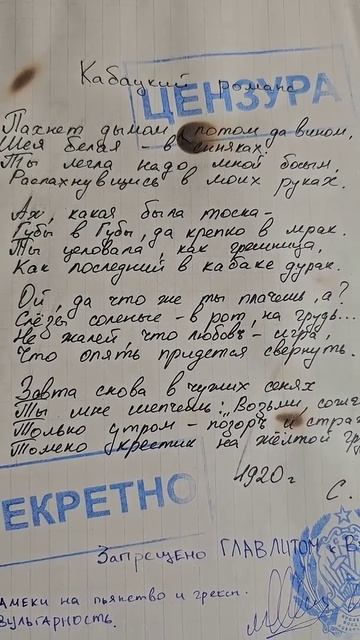 Кабацкий романс
ЦЕНЗУРА
Пахнет дымом, потом да вином,
Шея белая - в синяках.
Ты легла надо мной босым,
Распахнувшись в моих руках.
Ах, какая была тоска -
Губы в губы, да крепко в мрак.
Ты целовала, как грешница,
Как последний в кабаке дурак.
Ой, да что же ты плачешь, а?
Слёзы соленые - в рот, на грудь...
Не жалей, что любовь - игра,
Что опять придется свернуть.
Завта снова в чужих сенях
Ты мне шепчешь: „Возьми, согре
Только утром - позоръ и страх
Томеко крестик на жёлтой гр
1920 г
С.
ЕКРЕТНО
Запрещено ГЛАВЛИТОМ к
АМЕКИ НА ПЬЯНСТВО И ГРЕХ
ВУЛЬГАРНОСТЬ.